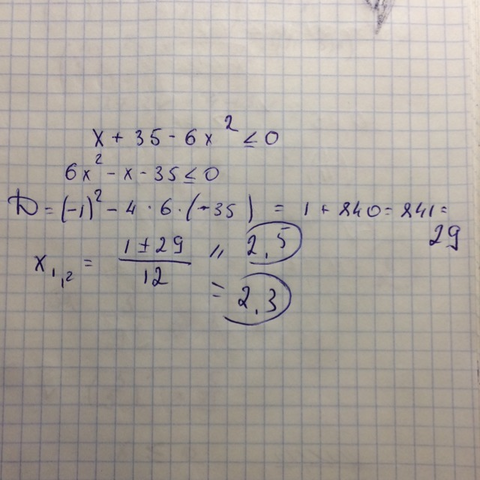 x + 35 - 6x² ≤ 0
6x² - x - 35 ≤ 0
D = (-1)² - 4 · 6 · (-35) = 1 + 840 = 841 =
29
x₁,₂ = (1 ± 29)/12 = 2,5
= 2,3